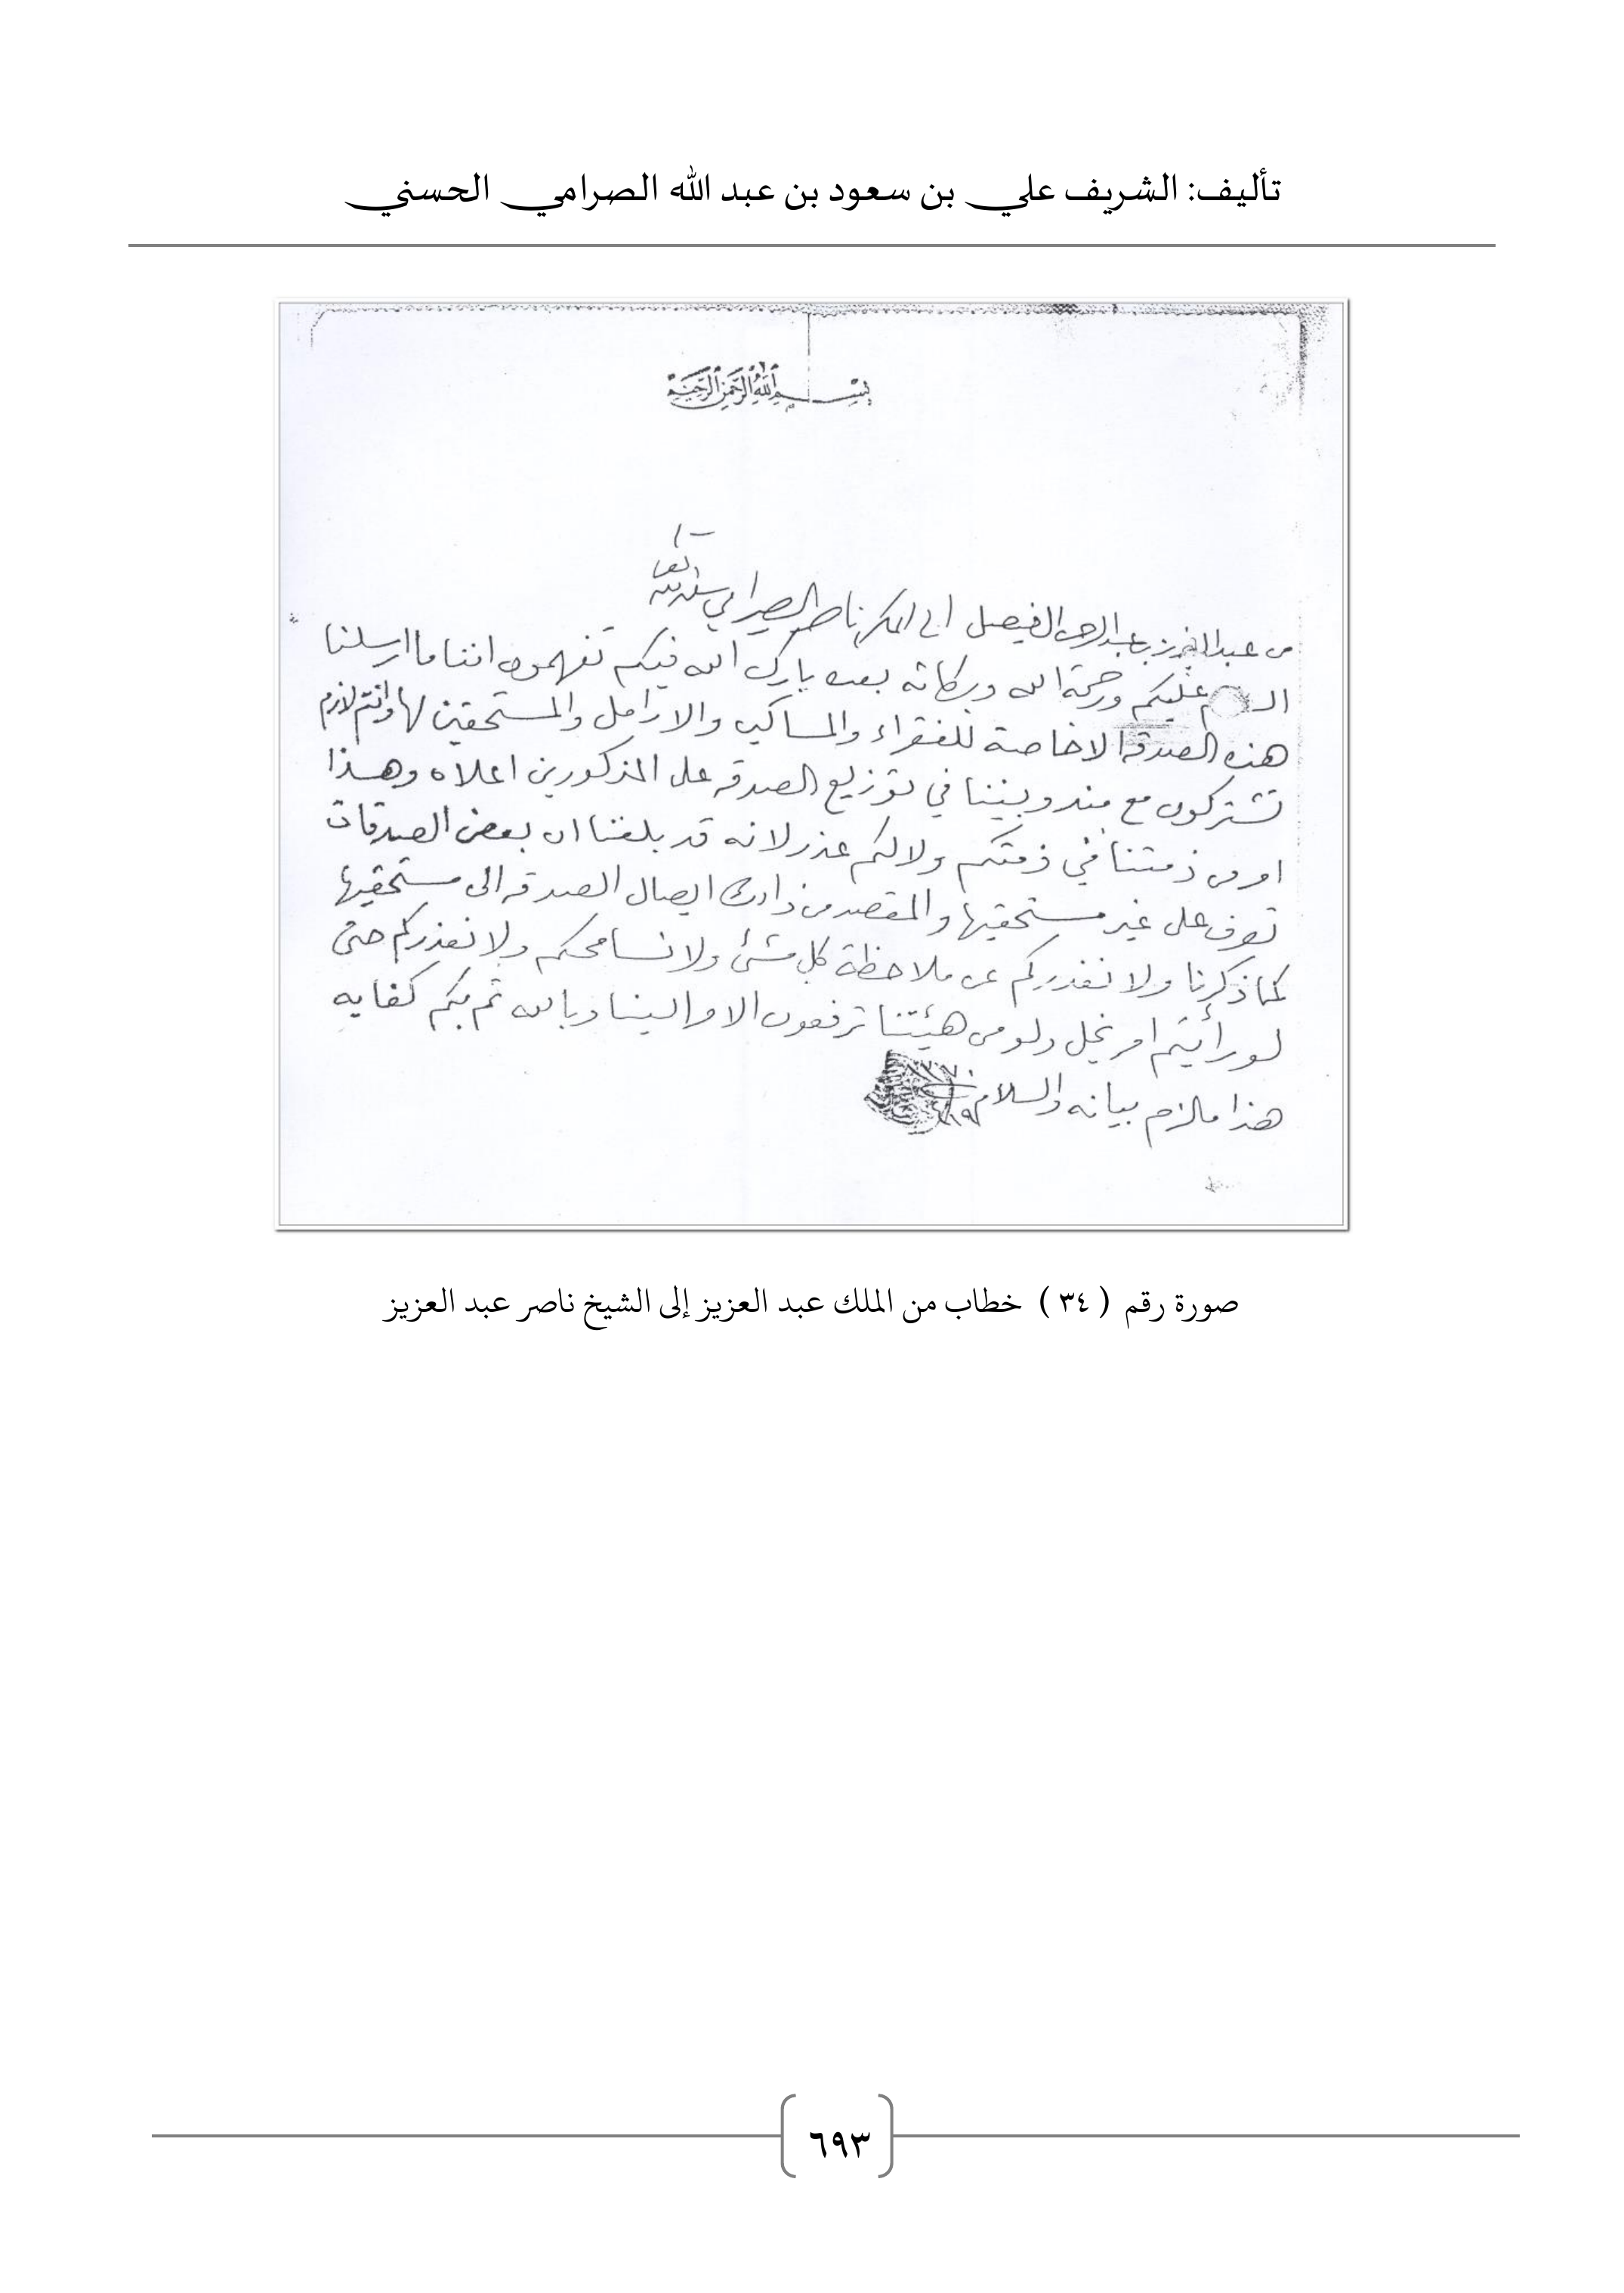 تأليف: الشريف علي بن سعود بن عبد الله الصرامي الحسني
بسم الله الرحمن الرحيم
من عبدالعزيز بن عبدالرحمن الفيصل الى المكرم ناصر الصرامي سلمه الله تعالى
السلام عليكم ورحمة الله وبركاته بعده بارك الله فيكم تفهمون اننا ما ارسلنا
هذه الصدقة الا خاصة للفقراء والمساكين والارامل والمستحقين لها وانتم لازم
تشتركون مع مندوبيننا في توزيع الصدقه على المذكورين اعلاه وهذا
امر من ذمتنا في ذمتكم ولا لكم عذر لانه قد بلغنا ان بعض الصدقات
تصرف على غير مستحقيها والمقصد من ذالك ايصال الصدقه الى مستحقيها
كما ذكرنا ولا نعذركم عن ملاحظة كل شئ ولا نسامحكم ولا نعذركم حتى
لو رأيتم امر يخل ولو من هيئتنا ترفعون الامر الينا وبالله ثم بكم كفايه
هذا مالزم بيانه والسلام
صورة رقم ( ٣٤ ) خطاب من الملك عبد العزيز إلى الشيخ ناصر عبد العزيز
٦٩٣